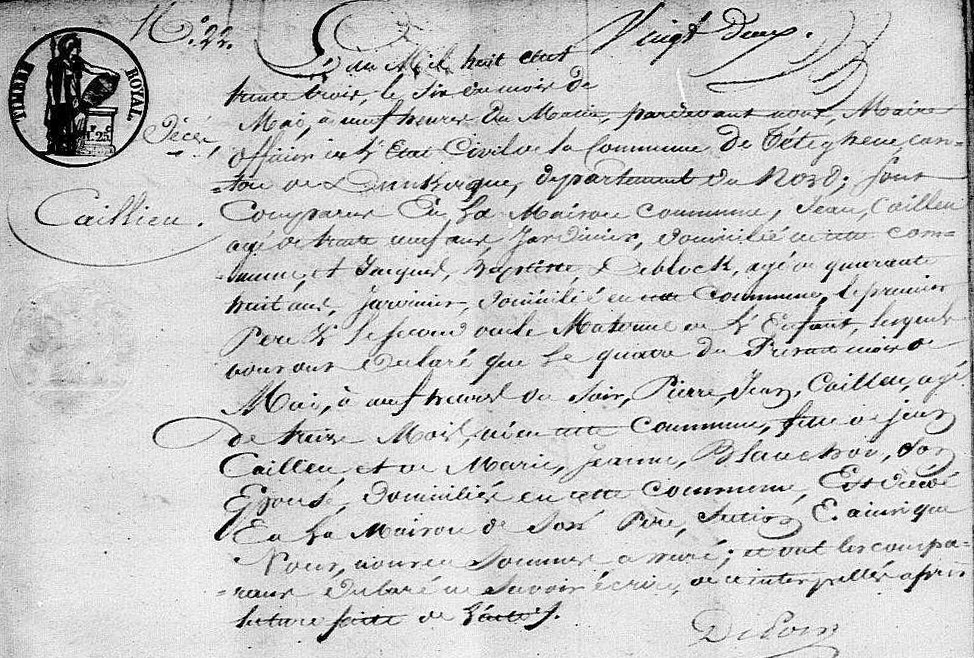 TIMBRE ROYAL
Nº 22.
Vingt deux.
L'an Mil huit cent
trente trois, le six du mois de
Décés
Mai, à neuf heures du Matin, pardevant nous, Maire
officier de L'Etat Civil de la Commune de Téteghem, can-
-ton de Dunkerque, département du Nord; sont
Caillieu.
Comparus En La Maison Commune, Jean, Caillieu
agé de trente neuf ans, Jardinier, domicilié en cette com-
-mune, et Jacques, Baptiste, Deblock, agé de quarante
huit ans, jardinier, domicilié en cette Commune, le premier
Pere & le second oncle Maternel de L'Enfant, lesquels
nous ont Déclaré que Le quatre du Présent mois de
Mai, à neuf heures du Soir, Pierre, Jean, Caillieu, agé
de treize Mois, né en cette Commune, fils de jean
Caillieu et de Marie, Jeanne, Blanckoe, son
Epouse, domiciliés en cette Commune, Est décédé
En La Maison de Son Père, Section E. ainsi que
Nous, nous en Sommes assuré; et ont les compa-
-rans declaré ne Savoir écrire, de ce interpellés après
lecture faite